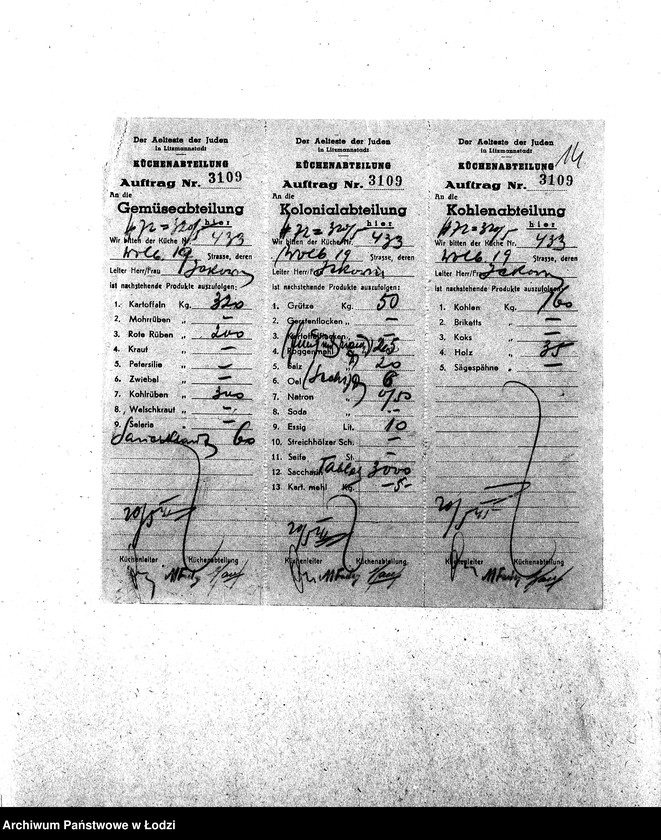 Der Aelteste der Juden
in Litzmannstadt
KÜCHENABTEILUNG
Auftrag Nr. 3109
An die
Gemüseabteilung
hier
Wir bitten der Küche Nr. 433
Wolb. 19 Strasse, deren
Leiter Herr/Frau
ist nachstehende Produkte auszufolgen:
1. Kartoffeln Kg. 320
2. Mohrrüben „ —
3. Rote Rüben „ 200
4. Kraut „ —
5. Petersilie „ —
6. Zwiebel „ —
7. Kohlrüben „ 300
8. Welschkraut „ —
9. Selerie „
Sauerkraut 60
20/5
Küchenleiter Küchenabteilung
Der Aelteste der Juden
in Litzmannstadt
KÜCHENABTEILUNG
Auftrag Nr. 3109
An die
Kolonialabteilung
hier
Wir bitten der Küche Nr. 433
Wolb. 19 Strasse, deren
Leiter Herr/Frau
ist nachstehende Produkte auszufolgen:
1. Grütze Kg. 50
2. Gerstenflocken „ —
3. Kartoffelflocken „
4. Roggenmehl
5. Salz „ 20
6. Oel
7. Natron „
8. Soda „ —
9. Essig Lit. 10
10. Streichhölzer Sch. —
11. Seife St. —
12. Saccharin Tabl. 3000
13 Kart. mehl Kg. -5-
20/5
Küchenleiter Küchenabteilung
14
Der Aelteste der Juden
in Litzmannstadt
KÜCHENABTEILUNG
Auftrag Nr. 3109
An die
Kohlenabteilung
hier
Wir bitten der Küche Nr. 433
Wolb. 19 Strasse, deren
Leiter Herr/Frau
ist nachstehende Produkte auszufolgen:
1. Kohlen Kg. 160
2. Briketts „ —
3. Koks „ —
4. Holz „ 35
5. Sägespähne „ —
20/5
Küchenleiter Küchenabteilung
Archiwum Państwowe w Łodzi